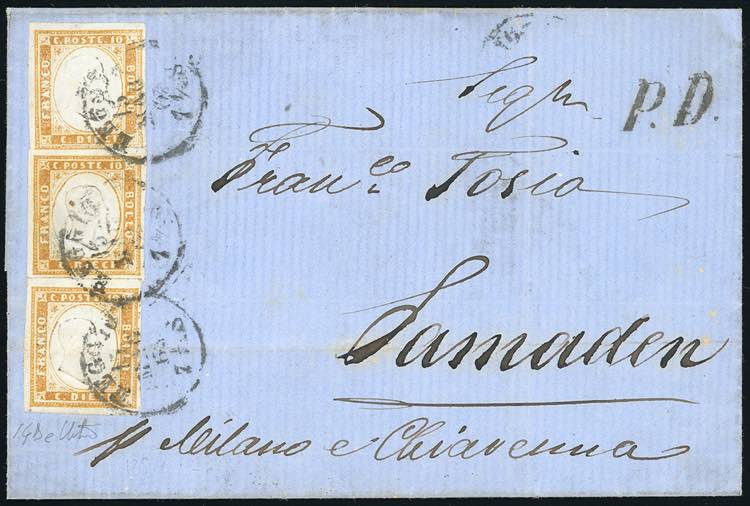 C. POSTE 10
FRANCO
BOLLO
C. DIECI
C. POSTE 10
FRANCO
BOLLO
C. DIECI
C. POSTE 10
FRANCO
BOLLO
C. DIECI
P.D.
Franc.co Tosio
Samaden
p Milano e Chiavenna